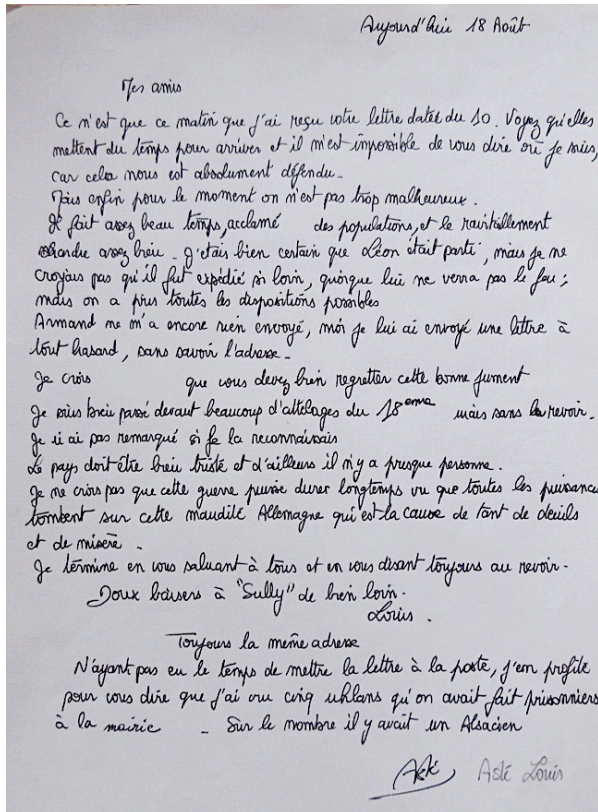 Aujourd'hui 18 Août
Mes amis
Ce n'est que ce matin que j'ai reçu votre lettre datée du 10. Voyez qu'elles
mettent du temps pour arriver et il m'est impossible de vous dire où je suis,
car cela nous est absolument défendu.
Mais enfin pour le moment on n'est pas trop malheureux.
Il fait assez beau temps, acclamé des populations, et le ravitaillement
marche assez bien. J'étais bien certain que Léon était parti, mais je ne
croyais pas qu'il fut expédié si loin, quoique lui ne verra pas le feu ;
mais on a pris toutes les dispositions possibles
Armand ne m'a encore rien envoyé, moi je lui ai envoyé une lettre à
tout hasard, sans savoir l'adresse.
Je crois que vous devez bien regretter cette bonne jument
Je suis bien passé devant beaucoup d'attelages du 18eme mais sans la revoir.
Je n'ai pas remarqué si je la reconnaissais
Le pays doit être bien triste et d'ailleurs il n'y a presque personne.
Je ne crois pas que cette guerre puisse durer longtemps vu que toutes les puissances
tombent sur cette maudite Allemagne qui est la cause de tant de deuils
et de misère.
Je termine en vous saluant à tous et en vous disant toujours au revoir.
Doux baisers à "Sully" de bien loin.
Louis.
Toujours la même adresse
N'ayant pas eu le temps de mettre la lettre à la poste, j'en profite
pour vous dire que j'ai vu cinq uhlans qu'on avait fait prisonniers
à la mairie - Sur le nombre il y avait un Alsacien
Asté Asté Louis